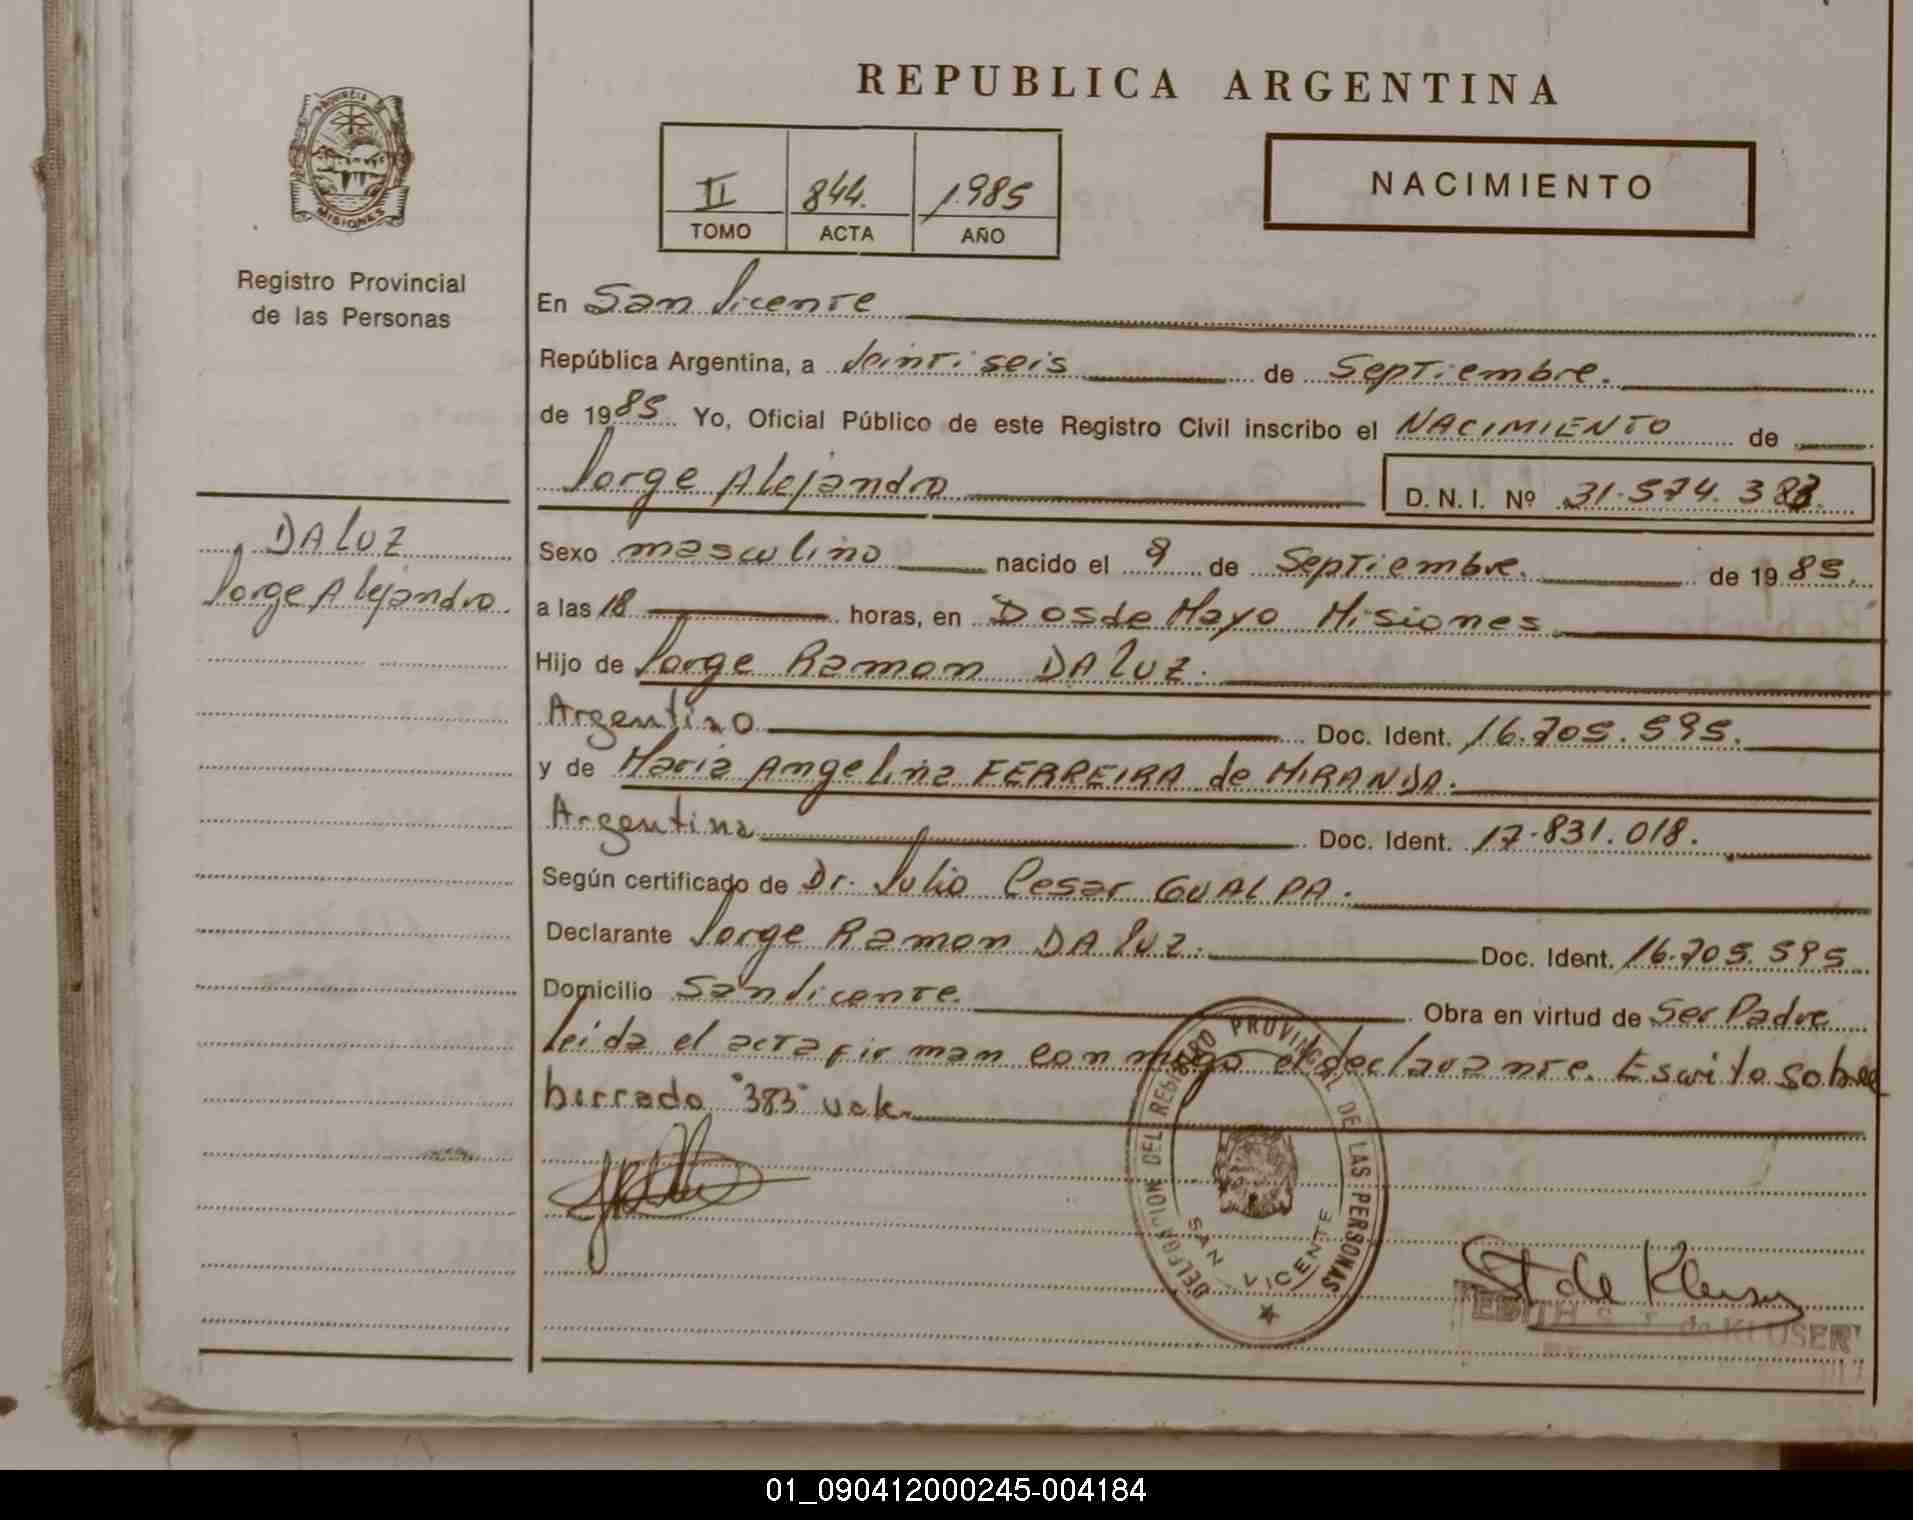 REPUBLICA ARGENTINA
PROVINCIA DE
MISIONES
Registro Provincial
de las Personas
II 844. 1.985
TOMO ACTA AÑO
NACIMIENTO
En San Vicente
República Argentina, a Veintiseis de Septiembre.
de 1985 Yo, Oficial Público de este Registro Civil inscribo el NACIMIENTO de
Jorge Alejandro D.N.I. Nº 31.574.383.
DA LUZ
Jorge Alejandro.
Sexo masculino nacido el 9 de Septiembre. de 1985.
a las 18 horas, en Dos de Mayo Misiones
Hijo de Jorge Ramon DA LUZ.
Argentino Doc. Ident. 16.705.595.
y de Maria Angelina FERREIRA de MIRANDA.
Argentina Doc. Ident. 17.831.018.
Según certificado de Dr. Julio Cesar GUALPA.
Declarante Jorge Ramon DA LUZ. Doc. Ident. 16.705.595
Domicilio San Vicente. Obra en virtud de Ser Padre
leída el acta firman conmigo el declarante. Escrito sobre
borrado "383" vale.
DELEGACION DEL REGISTRO PROVINCIAL DE LAS PERSONAS
SAN VICENTE
St de Kluser
EDITH S. T. de KLUSER
01_090412000245-004184